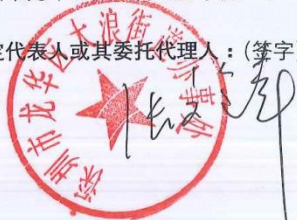 定代表人或其委托代理人：(签字
深圳市龙华区大浪街道办事处